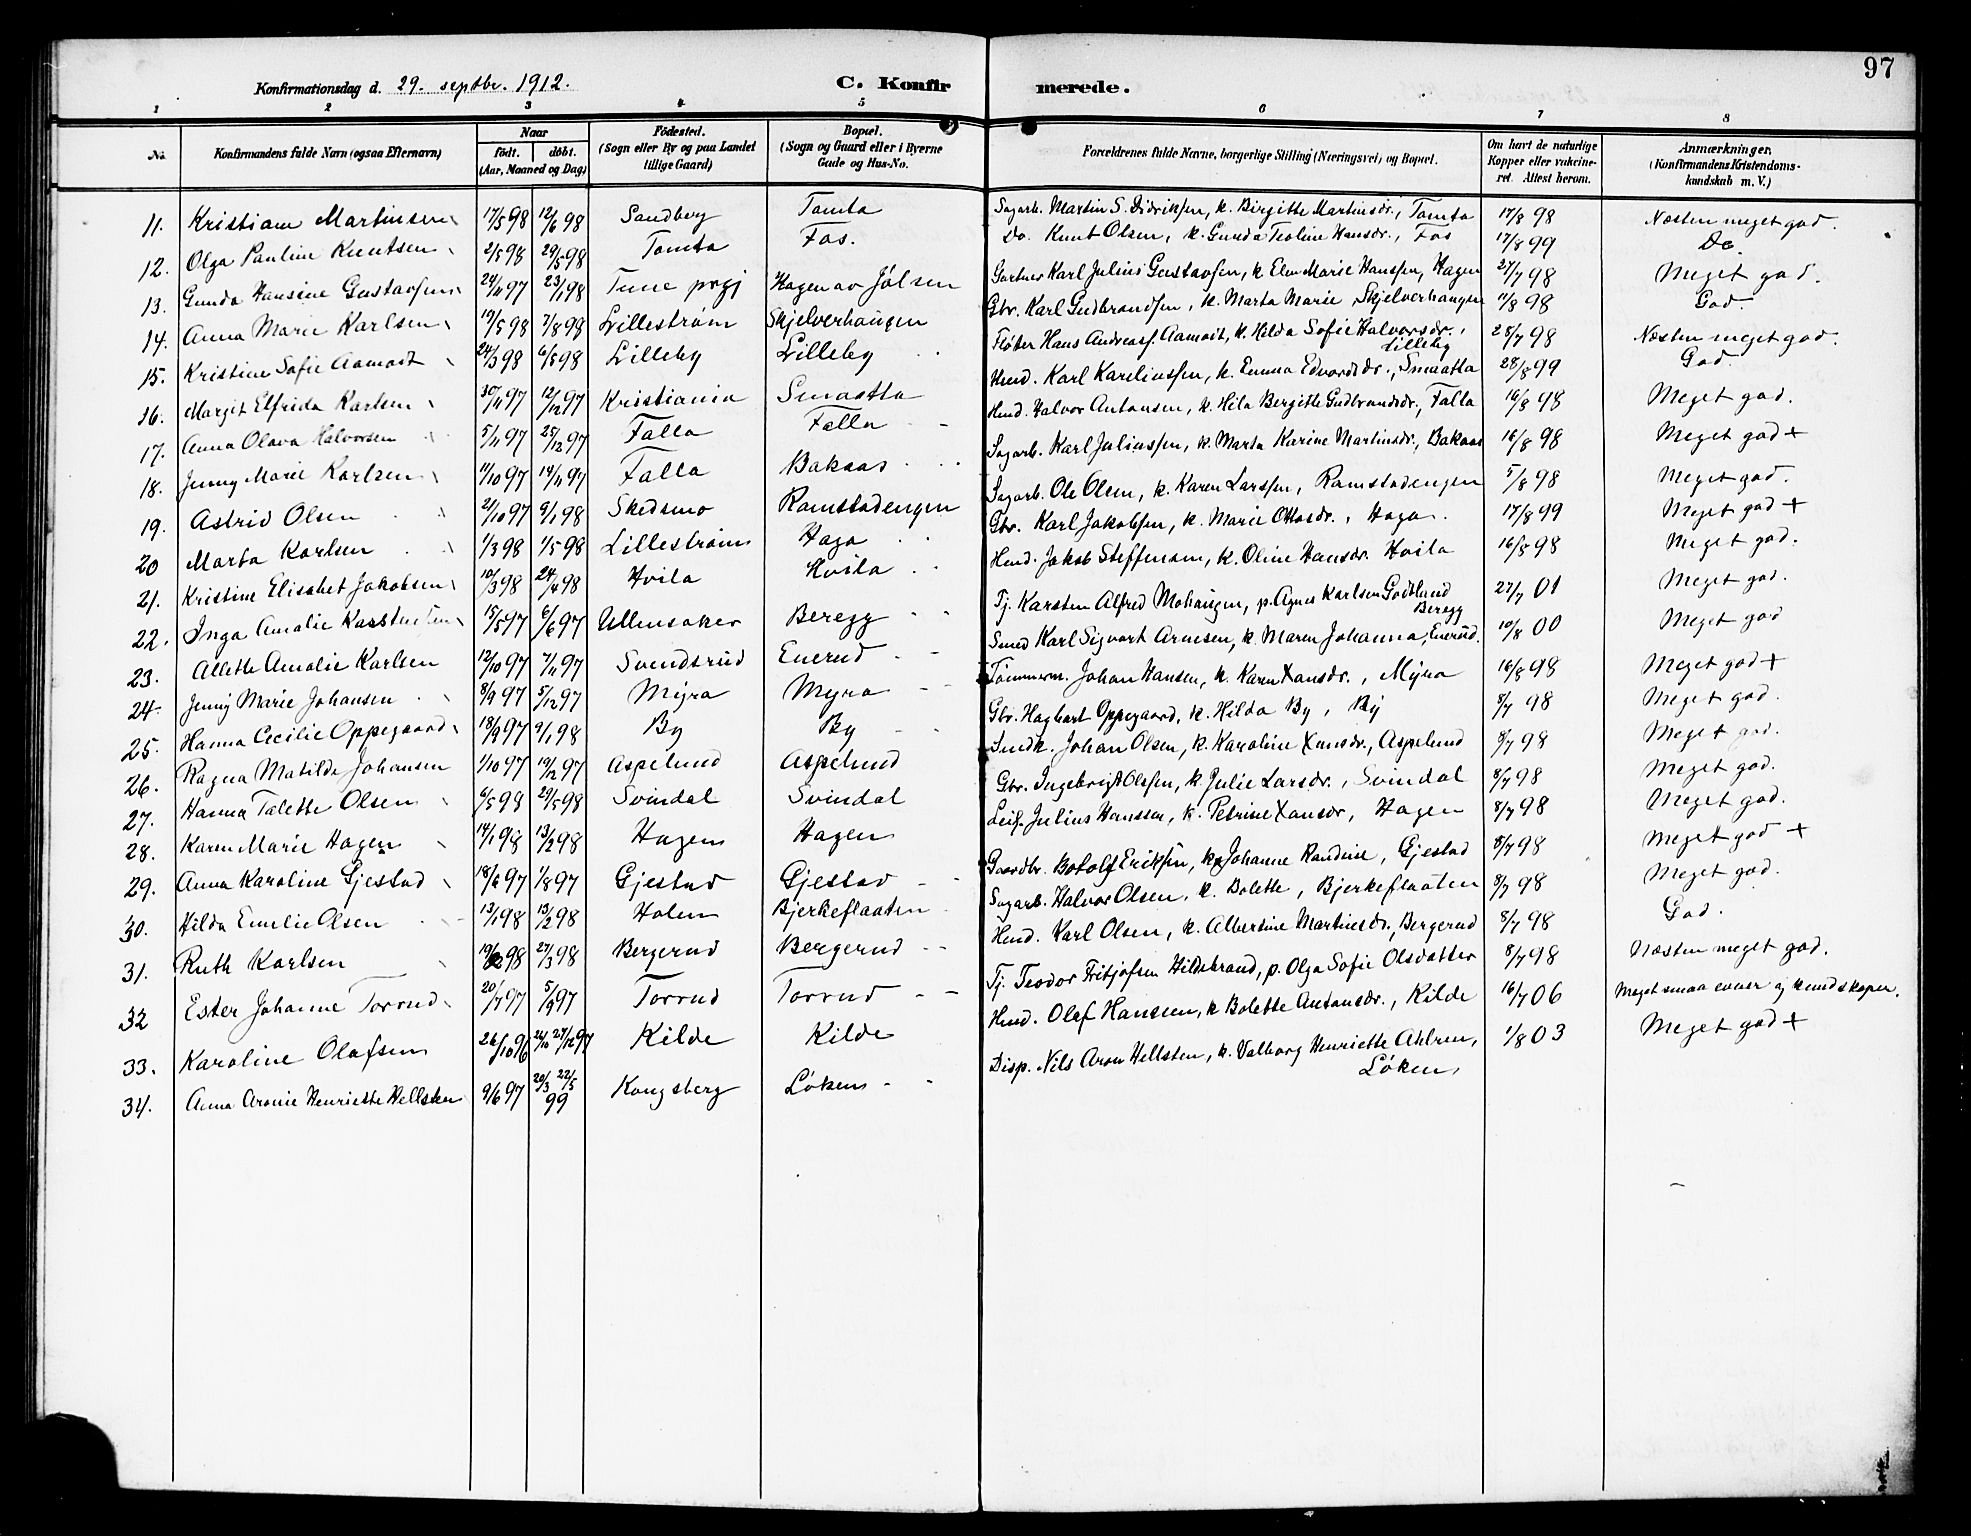 97
Konfirmationsdag d. 29. septbr. 1912.
C. Konfirmerede.
1 2 3 4 5 6 7 8
No. Konfirmandens fulde Navn (ogsaa Efternavn) Naar født. døbt. (Aar, Maaned og Dag) Fødested. (Sogn eller By og paa Landet tillige Gaard) Bopæl. (Sogn og Gaard eller i Byerne Gade og Hus-No. Forældrenes fulde Navne, borgerlige Stilling (Næringsvei) og Bopæl. Om havt de naturlige Kopper eller vakcineret. Attest herom. Anmærkninger. (Konfirmandens Kristendomskundskab m. V.)
11. Kristiane Martinsen 17/5 98 12/6 98 Sandberg Tomta Sagarb. Martin S. Didriksen, k. Birgitte Martinsdr., Tomta 17/8 98 Næsten meget god.
12. Olga Pauline Knutsen 2/5 98 29/5 98 Tomta Fos. Do. Knut Olsen, k. Gunda Teoline Hansdr., Fos 17/8 99 Do
13. Gunda Hansine Gustavsen 24/11 97 23/1 98 Tune prgj Hagen av Jølsen Gartner Karl Julius Gustavsen, k. Elen Marie Hanssen, Hagen 27/7 98 Meget god.
14. Anna Marie Karlsen 19/5 98 7/8 98 Lillestrøm Skjelverhaugen Gbr. Karl Gudbrandsen, k. Marta Marie Skjelverhaugen 11/8 98 God.
15. Kristine Sofie Aamodt 24/3 98 6/5 98 Lilleby Lilleby Fløter Hans Andreas. Aamodt, k. Hilda Sofie Halvorsdr., Lilleby 28/7 98 Næsten meget god.
16. Margit Elfrida Karlsen 30/11 97 12/12 97 Kristiania Smaatta Hmd. Karl Kareliussen, k. Emma Edvardsdr., Smaatta 28/8 99 God.
17. Anna Olava Halvorsen 5/11 97 25/12 97 Falla Falla Hmd. Halvor Antonsen, k. Hila Bergitte Gudbrandsdr., Falla 16/8 98 Meget god.
18. Jenny Marie Karlsen 11/10 97 14/11 97 Falla Bakaas Sagarb. Karl Juliussen, k. Marta Karine Martinsdr., Bakaas 16/8 98 Meget god +
19. Astrid Olsen 21/10 97 9/1 98 Skedsmo Ramstadengen Sagarb. Ole Olsen, k. Karen Larssen, Ramstadengen 5/8 98 Meget god.
20 Marta Karlsen 1/3 98 1/5 98 Lillestrøm Haga Gbr. Karl Jakobsen, k. Marie Ottosdr., Haga. 17/8 99 Meget god +
21. Kristine Elisabet Jakobsen 10/3 98 24/4 98 Hvila Hvila Hmd. Jakob Steffensen, k. Oline Hansdr. Hvila 16/8 98 Meget god.
22. Inga Amalie Karstensen 15/5 97 6/6 97 Ullensaker Beregg Tj. Karsten Alfred Mohaugen, p. Agnes Karlsen Godtlund Beregg 27/7 01 Meget god.
23. Allette Amalie Karlsen 12/10 97 7/11 97 Svendsrud Enerud Smed Karl Sigvart Arnesen, k. Maren Johanna, Enerud. 10/8 00 Meget god
24. Jenny Marie Johansen 8/9 97 5/12 97 Myra Myra Tømmerm. Johan Hansen, k. Karen Hansdr., Myra 16/8 98 Meget god +
25. Hanna Cecilie Oppegaard 18/9 97 9/1 98 By By Gbr. Hagbart Oppegaard, k. Hilda By, By 8/7 98 Meget god.
26. Ragna Matilde Johansen 1/10 97 19/12 97 Aspelund Aspelund Smedk. Johan Olsen, k. Karoline Hansdr., Aspelund 8/7 98 Meget god.
27. Hanna Talette Olsen 6/5 98 29/5 98 Svindal Svindal Gbr. Ingebrigt Olssen, k. Julie Larsdr., Svindal 8/7 98 Meget god.
28. Karen Marie Hagen 14/1 98 13/2 98 Hagen Hagen Leil. Julius Hanssen, k. Petrine Hansdr, Hagen 8/7 98 Meget god.
29. Anna Karoline Gjestad 18/6 97 1/8 97 Gjestad Gjestad Gaardbr. Botolf Eriksen, k. Johanne Randine, Gjestad 8/7 98 Meget god +
30. Hilda Emelie Olsen 13/1 98 13/2 98 Holen Bjerkeflaaten Sagarb. Halvor Olsen, k. Bolette, Bjerkeflaaten 8/7 98 Meget god.
31. Ruth Karlsen 19/2 98 27/3 98 Bergerud Bergerud Hmd. Karl Olsen, k. Albertine Martinsdr., Bergerud 8/7 98 God.
32 Ester Johanne Torrud 20/7 97 5/9 97 Torrud Torrud Tj. Teodor Fritjofsen Hildebrand, p. Olga Sofie Olsdatter 8/7 98 Næsten meget god.
33. Karoline Olafsen 26/10 96 26/10 27/12 97 Kilde Kilde Hmd. Olaf Hanssen, k Bolette Antonsdr., Kilde 16/7 06 Meget smaa evner og kundskaper.
34. Anna Aronie Henriette Hellsten 9/6 97 20/3 22/5 99 Kongsberg Løken Disp. Nils Aron Hellsten, k. Valborg Henriette Ahlren, Løken, 1/8 03 Meget god +